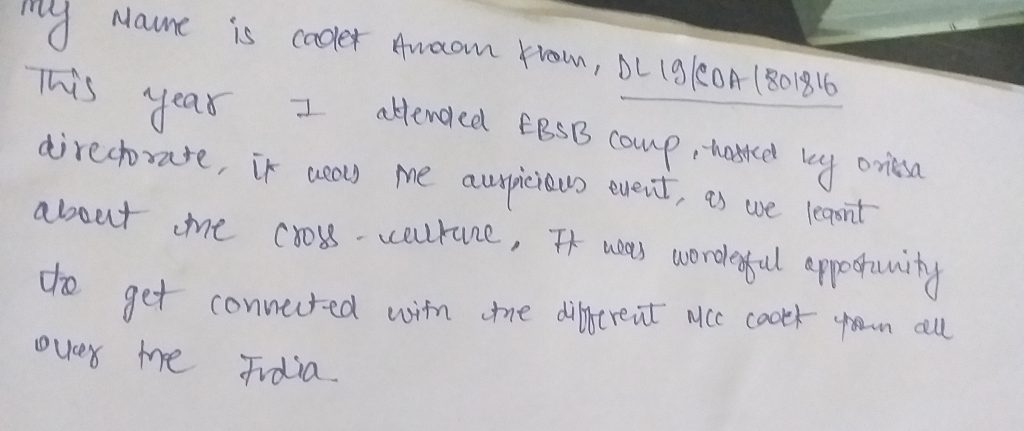 My Name is cadet from, DL19/COA/801816
This year I attended EBSB camp, hosted by orissa
directorate, it was the auspicious event, as we learnt
about the cross-culture, It was wonderful oppostunity
to get connected with the different NCC cadet from all
over the India.